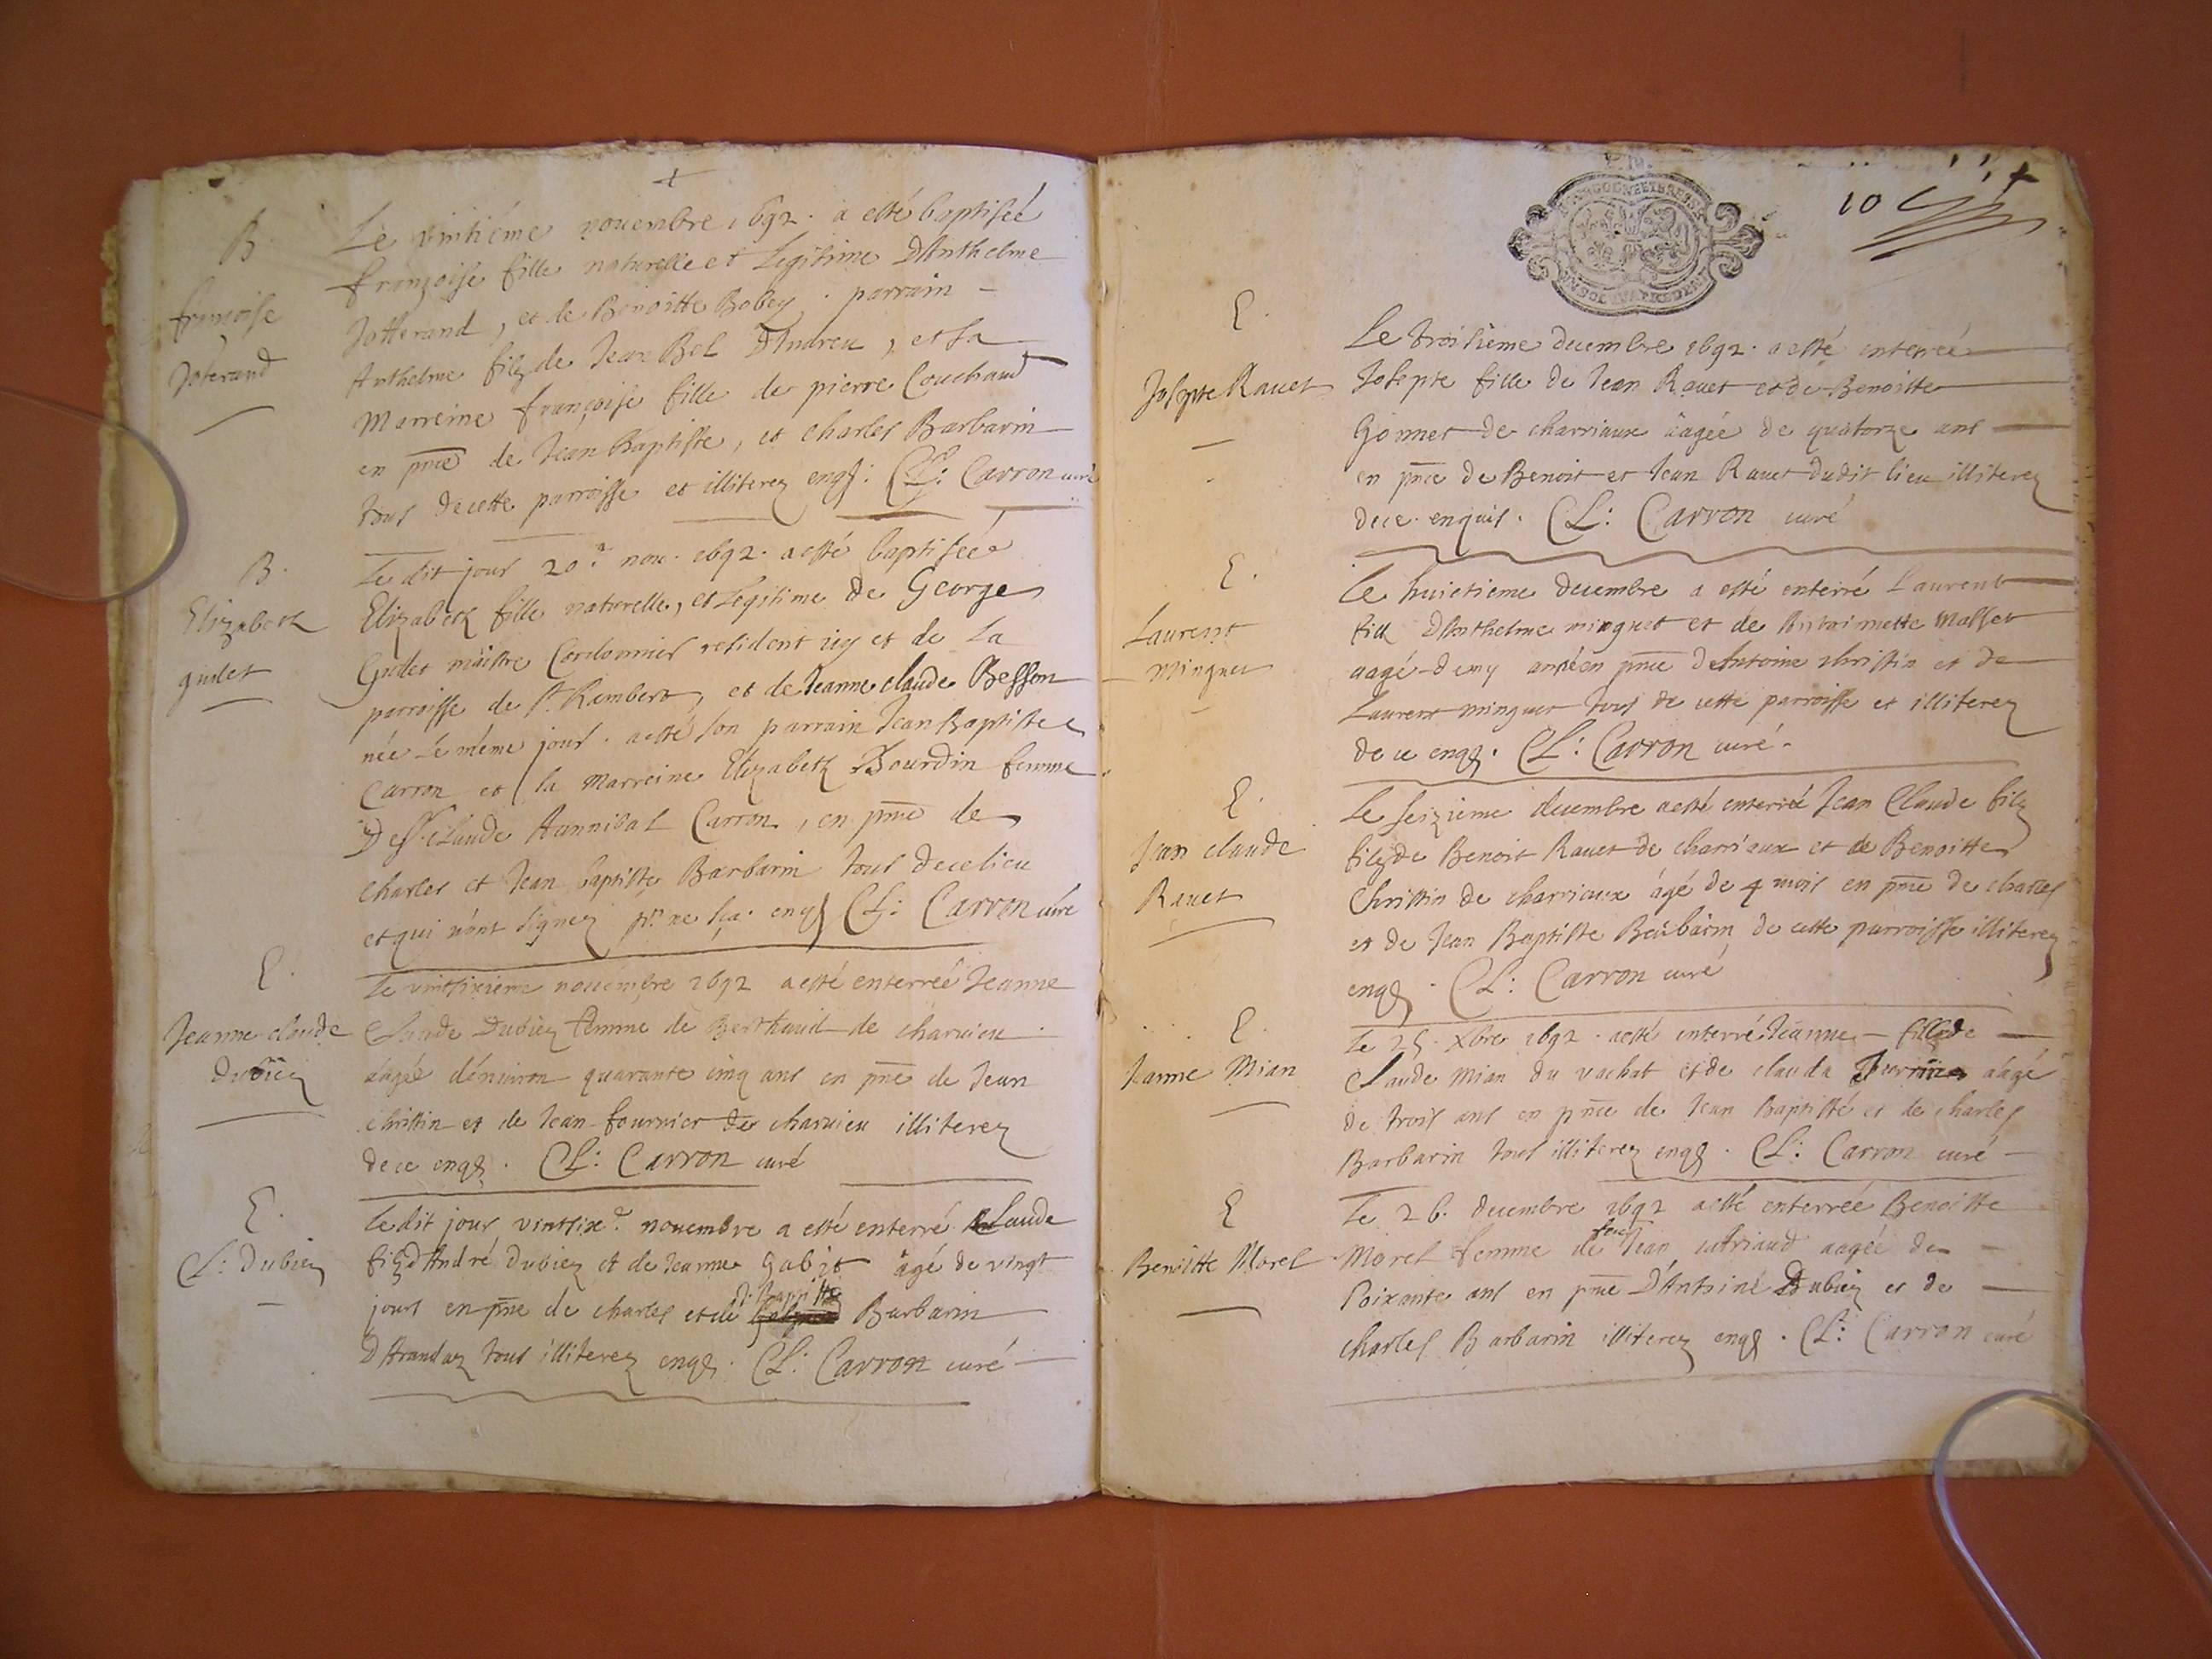 B
françoise
Joterand
Le vintiéme nouembre 1692. a esté baptiséé
françoise fille naturelle et Legitime DAnthelme
Jotterand, et de Benoitte Bobey. parrain -
Anthelme filz de Jean Bel DIndreu, et sa
Marreine françoise fille de pierre Couchaud
en pñce de Jean baptiste, et charles Barbarin
tous de cette parroisse et illiterez enqs. CL: Carron curé
B.
Elizabeth
gudet
Le dit jour 20.e nou. 1692. a esté baptiséé
Elizabeth fille naturelle, et Legitime de George
Gudet maistre Cordonnier resident icy et de La
parroisse de St Rembert, et de Jeanne claude Besson
née Le méme jour. a esté son parrain Jean Baptiste
Carron et sa Marreine Elizabeth Bourdin femme
De Sr. Claude Hannibal Carron, en pñce de
charles et Jean baptiste Barbarin tous de ce lieu
et qui n'ont signez pr. ne sça. enqs CL: Carron curé
E.
Jeanne claude
Dubiez
Le vintsixiéme nouembre 1692 a esté enterréé Jeanne
Claude Dubiez femme de Berthaud de charuieu
âagéé d'enuiron quarante cinq ans en pñce de Jean
christin et de Jean fournier de charuieu illiterez
de ce enqs. CL: Carron curé
E.
CL: Dubiez
Le dit jour vintsixe. nouembre a esté enterré Claude
filz d'André Dubiez et de Jeanne Gabet âgé de vingt
jours en pñce de charles et de J. Baptiste Barbarin
DArandaz tous illiterez enqs. CL: Carron curé -
BOURGOGNE ET BRESSE
10
E.
Josepte Rauet
Le troisiéme decembre 1692. a esté enterréé
Josepte fille de Jean Rauet et de Benoitte
Gonnet de charriaux âagée de quatorze ans
en pñce de Benoit et Jean Rauet dudit lieu illiterez
de ce. enquis. CL: Carron curé
E.
Laurent
Minguet
Le huictieme decembre a esté enterré Laurent
filz DAnthelme minguet et de Antoinette Masset
aagé demy année en pñce de Antoine christin et de
Laurent minguet tous de cette parroisse et illiterez
de ce enqs. CL: Carron curé -
E.
Jean claude
Rauet
Le seizieme decembre a esté enterré Jean Claude filz
filz de Benoit Rauet de charriaux et de Benoitte
Christin de charriaux âgé de 4 mois en pñce de charles
et de Jean Baptiste Barbarin de cette parroisse illiterez
enqs. CL: Carron curé
E.
Janne Mian
Le 25. Xbre 1692. a esté enterré Jeanne - fille de
Claude Mian du vachat et de clauda aâgé
de trois ans en pñce de Jean Baptisté et de charles
Barbarin tous illiterez enqs. CL: Carron curé -
E
Benoitte Morel
Le 26. decembre 1692 a esté enterréé Benoitte
Morel femme de feu Jean cutriaud aagéé de
soixante ans en pñce D'Antoine Dubiez et de
charles Barbarin illiterez enqs. CL: Carron curé